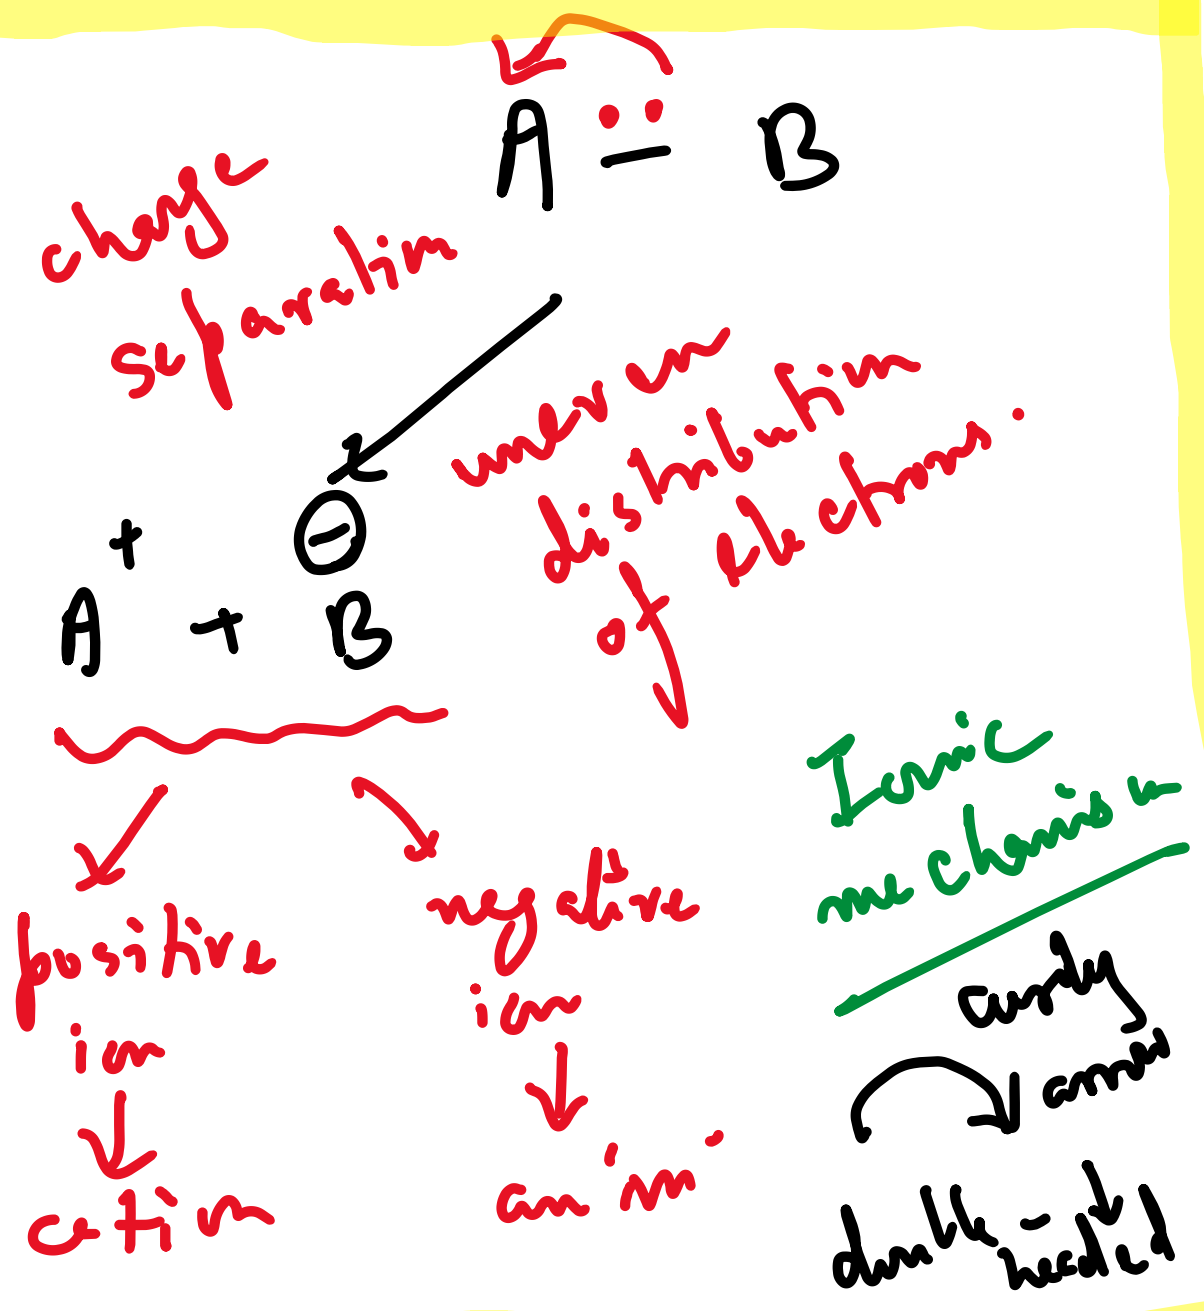 A : B
charge
separation
uneven
distribution
of electrons.
A⁺ + B⊖
positive
ion
cation
negative
ion
anion
Ionic
mechanism
curly
arrow
double-headed